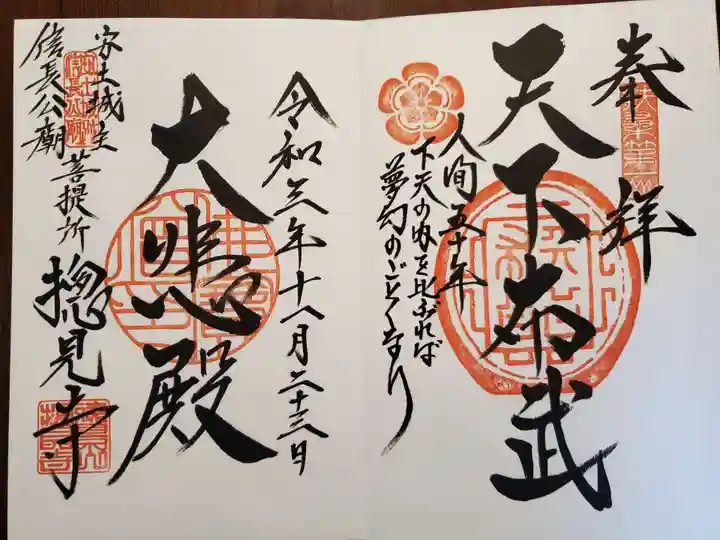 奉拝
天下布武
人間五十年
下天の内を比ぶれば
夢幻のごとくなり
令和三年十一月二十三日
大悲殿
安土城主
信長公廟
菩提所
摠見寺